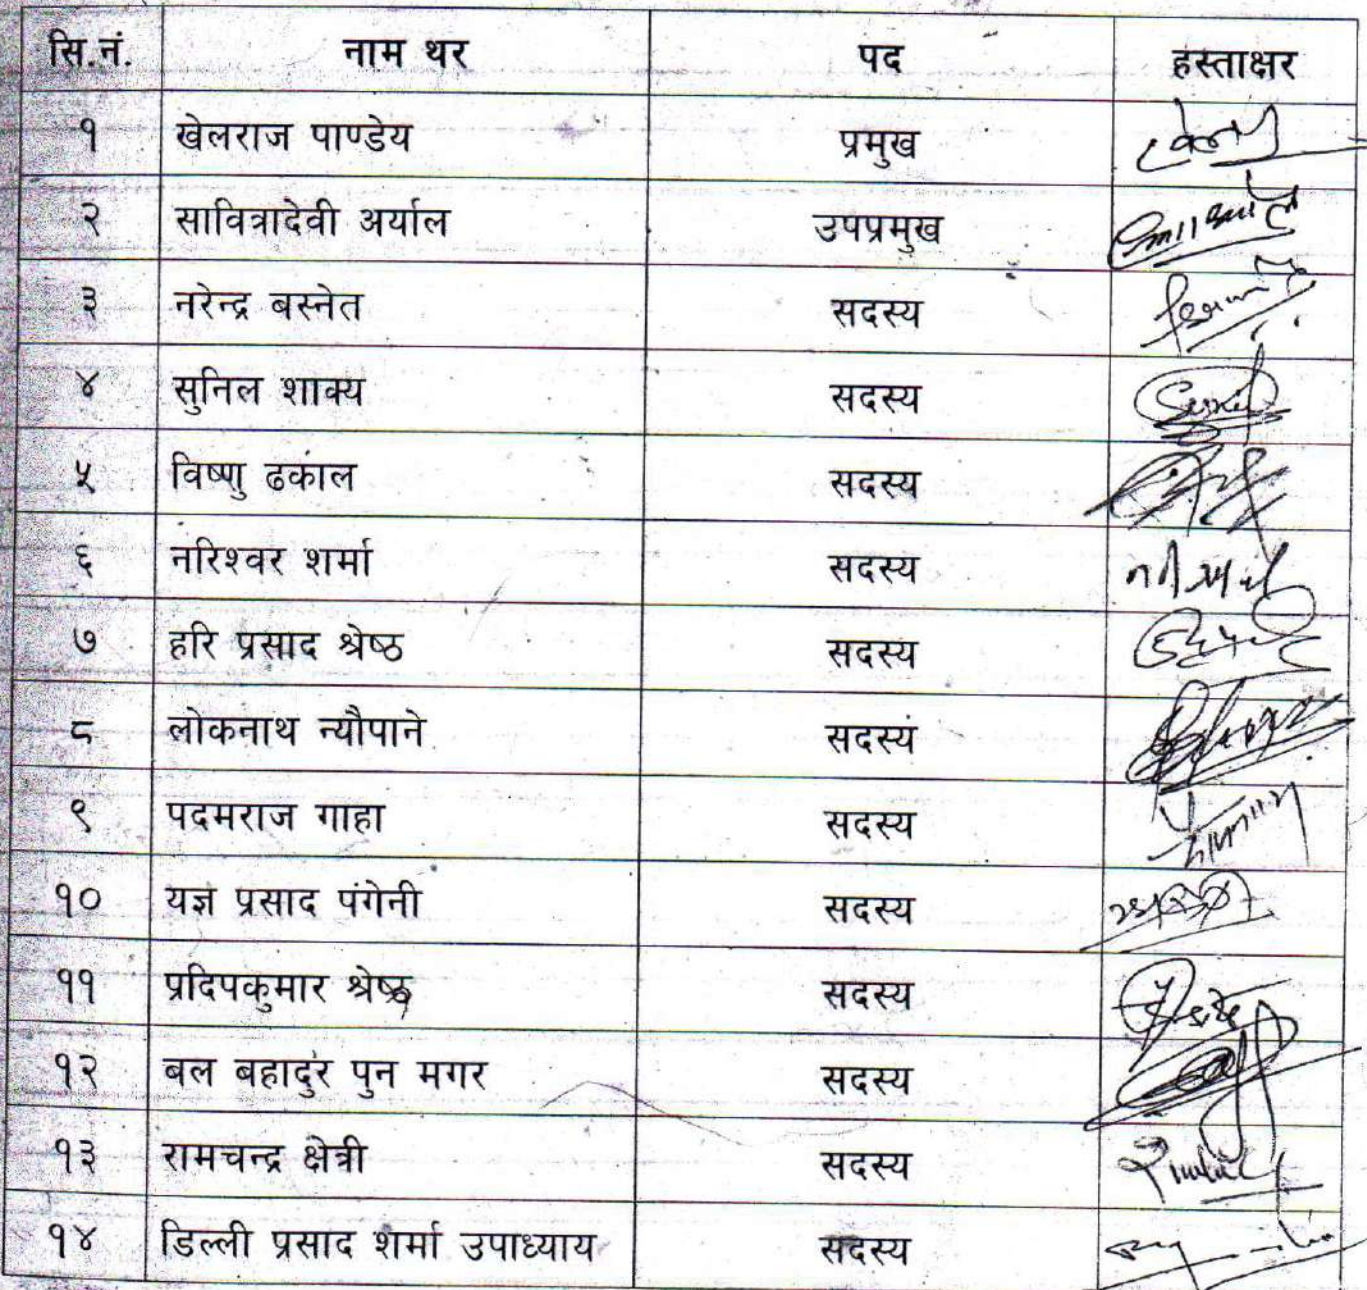 सि.नं. नाम थर पद हस्ताक्षर
१ खेलराज पाण्डेय प्रमुख
२ सावित्रादेवी अर्याल उपप्रमुख
३ नरेन्द्र बस्नेत सदस्य
४ सुनिल शाक्य सदस्य
५ विष्णु ढकाल सदस्य
६ नरिश्वर शर्मा सदस्य
७ हरि प्रसाद श्रेष्ठ सदस्य
८ लोकनाथ न्यौपाने सदस्य
९ पदमराज गाहा सदस्य
१० यज्ञ प्रसाद पंगेनी सदस्य
११ प्रदिपकुमार श्रेष्ठ सदस्य
१२ बल बहादुर पुन मगर सदस्य
१३ रामचन्द्र क्षेत्री सदस्य
१४ डिल्ली प्रसाद शर्मा उपाध्याय सदस्य